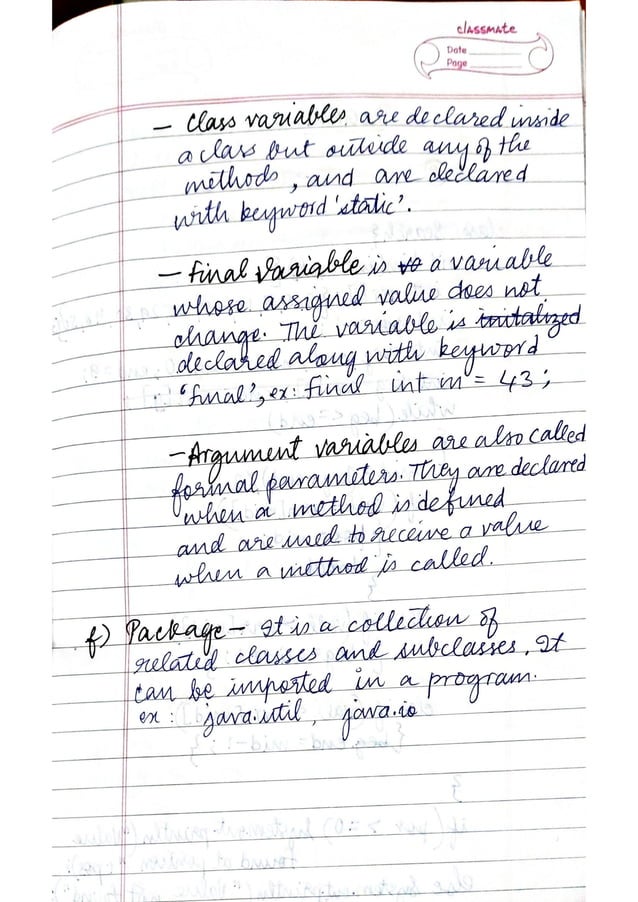 classmate
Date
Page
- Class variables are declared inside
a class but outside any of the
methods, and are declared
with keyword 'static'.
- final variable is a variable
whose assigned value does not
change. The variable is initalized
declared along with keyword
'final', ex: final int m = 43;
- Argument variables are also called
formal parameters. They are declared
when a method is defined
and are used to receive a value
when a method is called.
f) Package - It is a collection of
related classes and subclasses. It
can be imported in a program.
ex: java.util, java.io